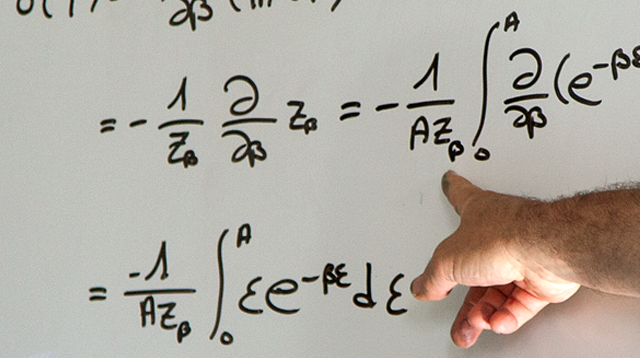 = -1/Z_β ∂/∂β Z_β = -1/(AZ_β) ∫_0^A ∂/∂β (e^{-βε
= -1/(AZ_β) ∫_0^A ε e^{-βε} dε